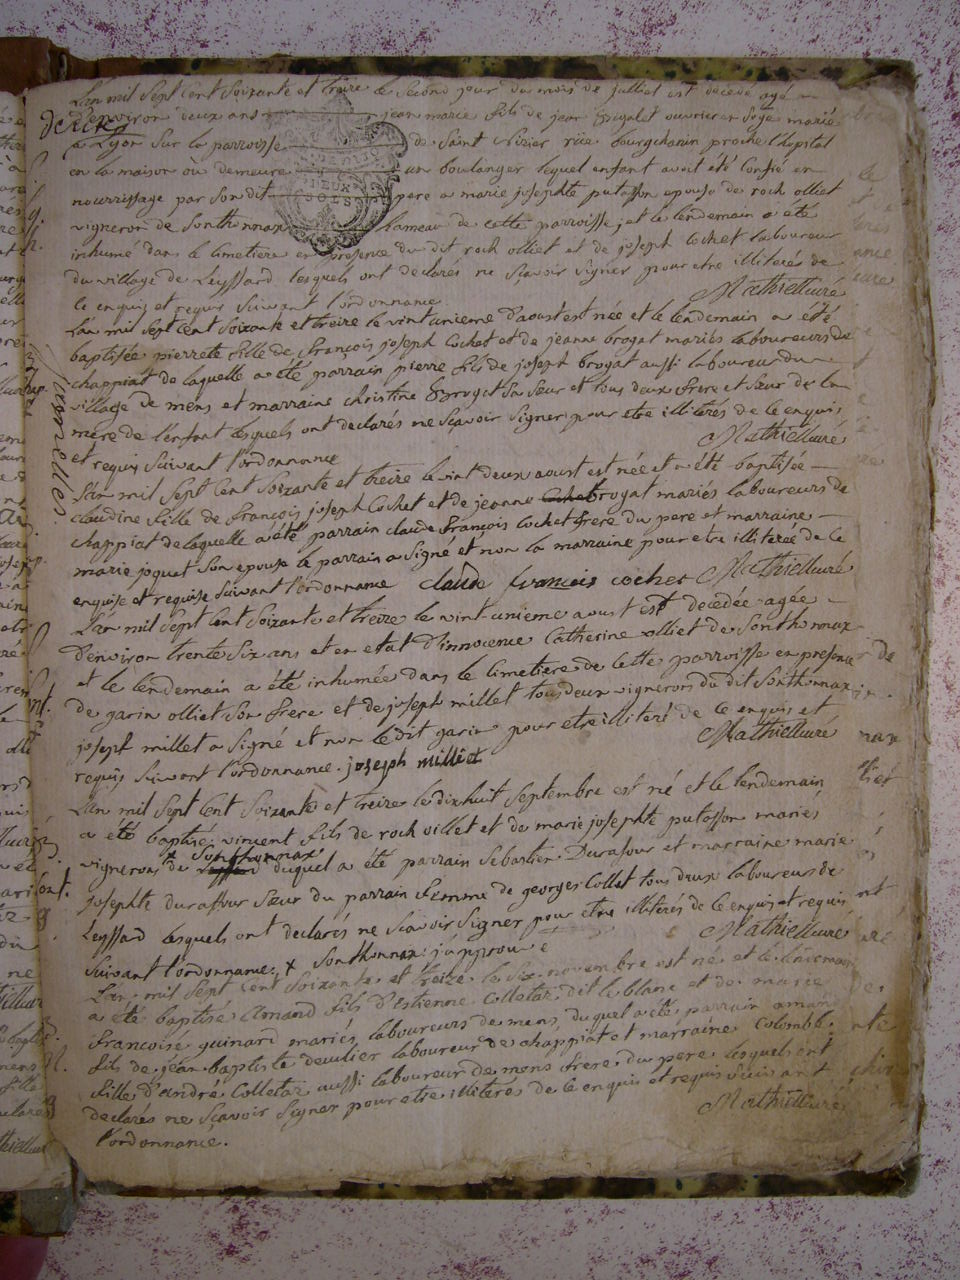 L'an mil sept cent soixante et treize le second jour du mois de julliet est decedé agé
d'environ deux ans jean marie fils de jean Brigalet ouvrier en soye marié
deces
a Lyon sur la parroisse de saint nizier rüe bourgchanin proche l'hopital
en la maison où demeure un boulanger lequel enfant avoit été confié en
nourrissage par son dit pere a marie josephte putasson epouse de roch olliet
vigneron de Sonthonnax hameau de cette parroisse, et le lendemain a été
inhumé dans le cimetiere en presence du dit roch olliet et de joseph cochet laboureur
du village de Leyssard lesquels ont declarés ne sçavoir signer pour etre illiterés de
ce enquis et requis suivant l'ordonnance. Mathieu curé
L'an mil sept cent soixante et treize le vint unieme d'aoust est née et le lendemain a été
baptisée pierrete fille de françois joseph Cochet et de jeanne brogat mariés laboureurs de
chappiat de laquelle a été parrain pierre fils de joseph brogat aussi laboureur du
village de mens et marraine christine Brogat sa sœur et tous deux frere et sœur de la
mere de l'enfant lesquels ont declarés ne sçavoir signer pour etre illiterés de ce enquis
et requis suivant l'ordonnance Mathieu curé
jumelles.
L'an mil sept cent soixante et treize le vint deux aoust est née et a été baptisée
claudine fille de françois joseph Cochet et de jeanne brogat mariés laboureurs de
chappiat de laquelle a été parrain claude françois cochet frere du pere et marraine
marie joguet son epouse le parrain a signé et non la marraine pour etre illiterée de ce
enquise et requise suivant l'ordonnance claude francois cochet Mathieu curé
L'an mil sept cent soixante et treize le vint unieme aoust est decedée agée
d'environ trente six ans et en etat d'innocence Catherine olliet de Sonthonnax
et le lendemain a été inhumée dans le cimetiere de cette parroisse en presence
de garin olliet son frere et de joseph millet tous deux vignerons du dit Sonthonnax
joseph millet a signé et non le dit garin pour etre illiteré de ce enquis et
requis suivant l'ordonnance. joseph milliet Mathieu curé
L'an mil sept cent soixante et treize le dixhuit septembre est né et le lendemain
a été baptisé vincent fils de roch olliet et de marie josephte putasson mariés
x Sonthonnax
vignerons de duquel a été parrain Sebastien Durafour et marraine marie
josephte durafour sœur du parrain femme de georges Collet tous deux laboureurs de
Leyssard lesquels ont declarés ne sçavoir signer pour etre illiterés de ce enquis et requis
suivant l'ordonnance. x Sonthonnax j'approuve Mathieu curé
L'an mil sept cent soixante et treize le six novembre est né et le lendemain
a été baptisé Amand fils d'Estienne Colletaz dit le blanc et de marie
françoise guinard mariés laboureurs de mens, duquel a été parrain amand
fils de jean baptiste deculier laboureur de chappiat et marraine Colombe
fille d'andré Colletaz aussi laboureur de mens frere du pere lesquels ont
declarés ne sçavoir signer pour etre illiterés de ce enquis et requis suivant
l'ordonnance. Mathieu curé